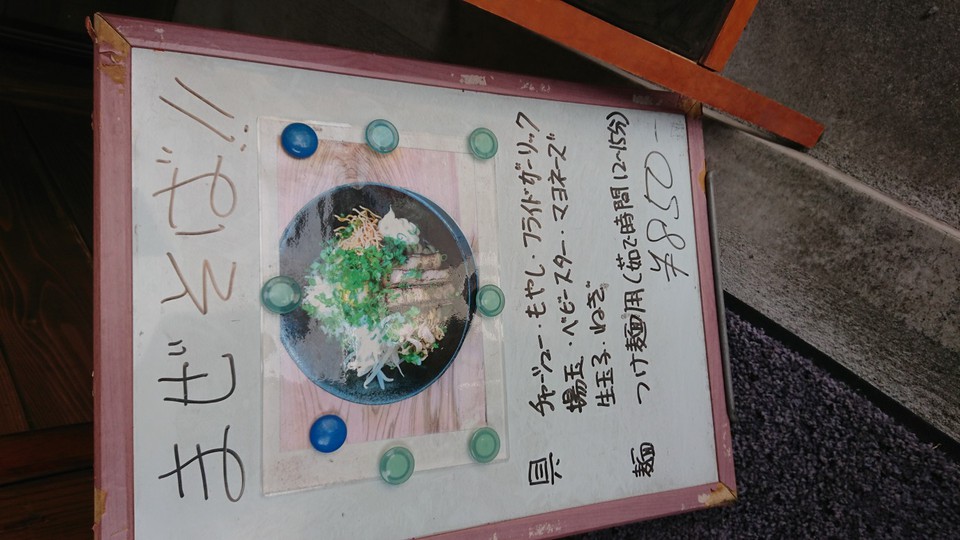 まぜそば!!
具 チャーシュー・もやし・フライドガーリック
揚玉・ベビースター・マヨネーズ
生玉子・ねぎ
麺 つけ麺用(茹で時間12〜15分)
¥850-